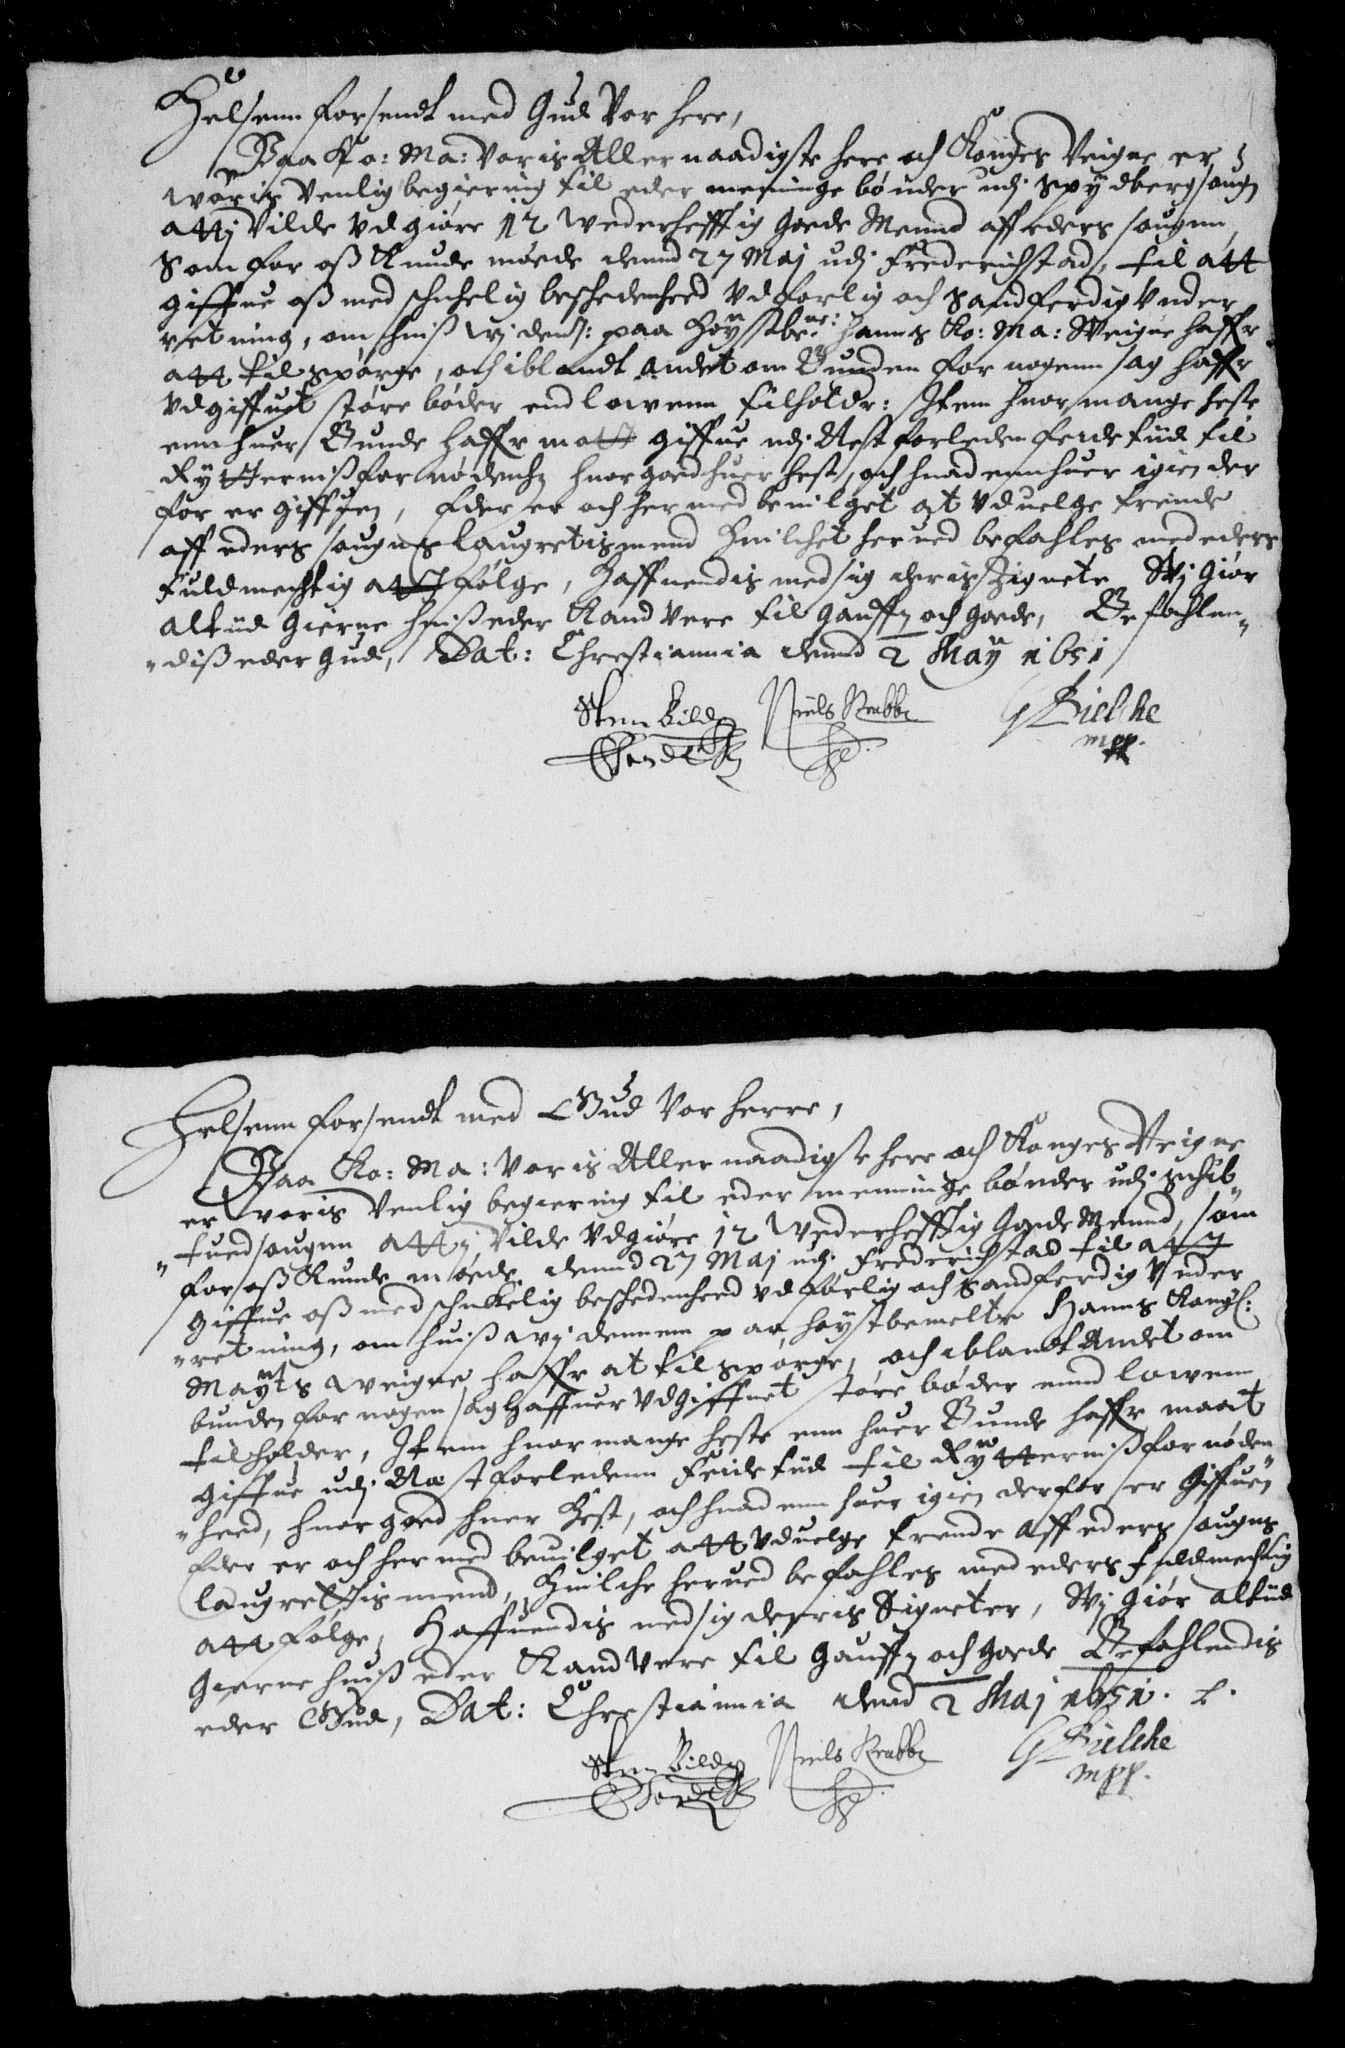 Helsenn forsendt med Gud Vor here,
Paa Ko: Ma: Voris Aller naadigste here och Konges Veigne er
woris Venlig begiering til eder meninge bønder udj Spydberg sougn
attj Vilde Vdgiøre 12 wederhefftig Goede Mennd aff eders sougnn,
Som for oß Kunde møede dennd 27 Maj udj Frederichstad, til att
giffue oß med schichelig beschedenheed Vdførlig och Sandferdig Vnder
retning, om huiß wj denß: paa Høystbe.ne: hanns Ko: Ma: Weigne haffr
att tilspørge, och iblandt andet om Bunden for nogenn sag haffr
Vdgiffuet støre bøder end lowenn tilholdr: Item huor mange heste
enn huer Bunde haffr matt giffue udj Nest forleden feide tiid til
Rytternis fornødenh, huor goed huer hest, och huad enn huer igien der
for er giffuen, Eder er och her med beuilget at Vduelge trende
aff eders sougns laugretismend Huilchet herued befahles med eders
Fuldmechtig att følge, Haffuendis med sig deris Zignete Wj Giør
altiid Gierne huiß eder Kand Vere til Gauffn och goede, Befahlen-
diß eder Gud, Dat: Chrestiannia dennd 2 May 1651
Sten Bilde Niels Krabbe G Bielche
mpp.
Helsenn forsendt med Gud Vor herre,
Paa Ko: Ma: Voris Aller naadigste here och Konges Veigne
er woris Venlig begiering til eder menninge bønder udj Schib-
tuedsougnn attj Vilde Vdgiøre 12 wederhefftig Goede Mennd, som
for oß Kunde møede dennd 27 Maj udj Frederichstad til att
giffue oß med schickelig beschedenheed Vdførlig och Sandferdig Vnder
retning, om huiß wj dennem paa høystbemelte Hanns Kongl:
Mayts weigne haffr at tilspørge, och iblandt Andet om
bunden for nogen sag haffuer Vdgiffuet støre bøder ennd lowenn
tilholder, Item huor mange heste enn huer Bunde haffr maat
giffue udj Næst forledenn Feide tiid til Rytterniß fornøden-
heed, huor goed huer Hest, och huad enn huer igien derfor er Giffuen
Eder er och her med beuilget att Vduelge trende aff eders sougns
laugrettismend, Huilche herued befahles med eders fuldmechtig
att følge, Haffuendis med sig derris Signeter, Wj Giør altiid
Gierne huiß eder Kand Vere til Gauffn och goede Befahlendis
eder Gud, Dat: Chrestiannia dend 2 Maj 1651.
Sten Bilde Niels Krabbe G Bielche
mpp.